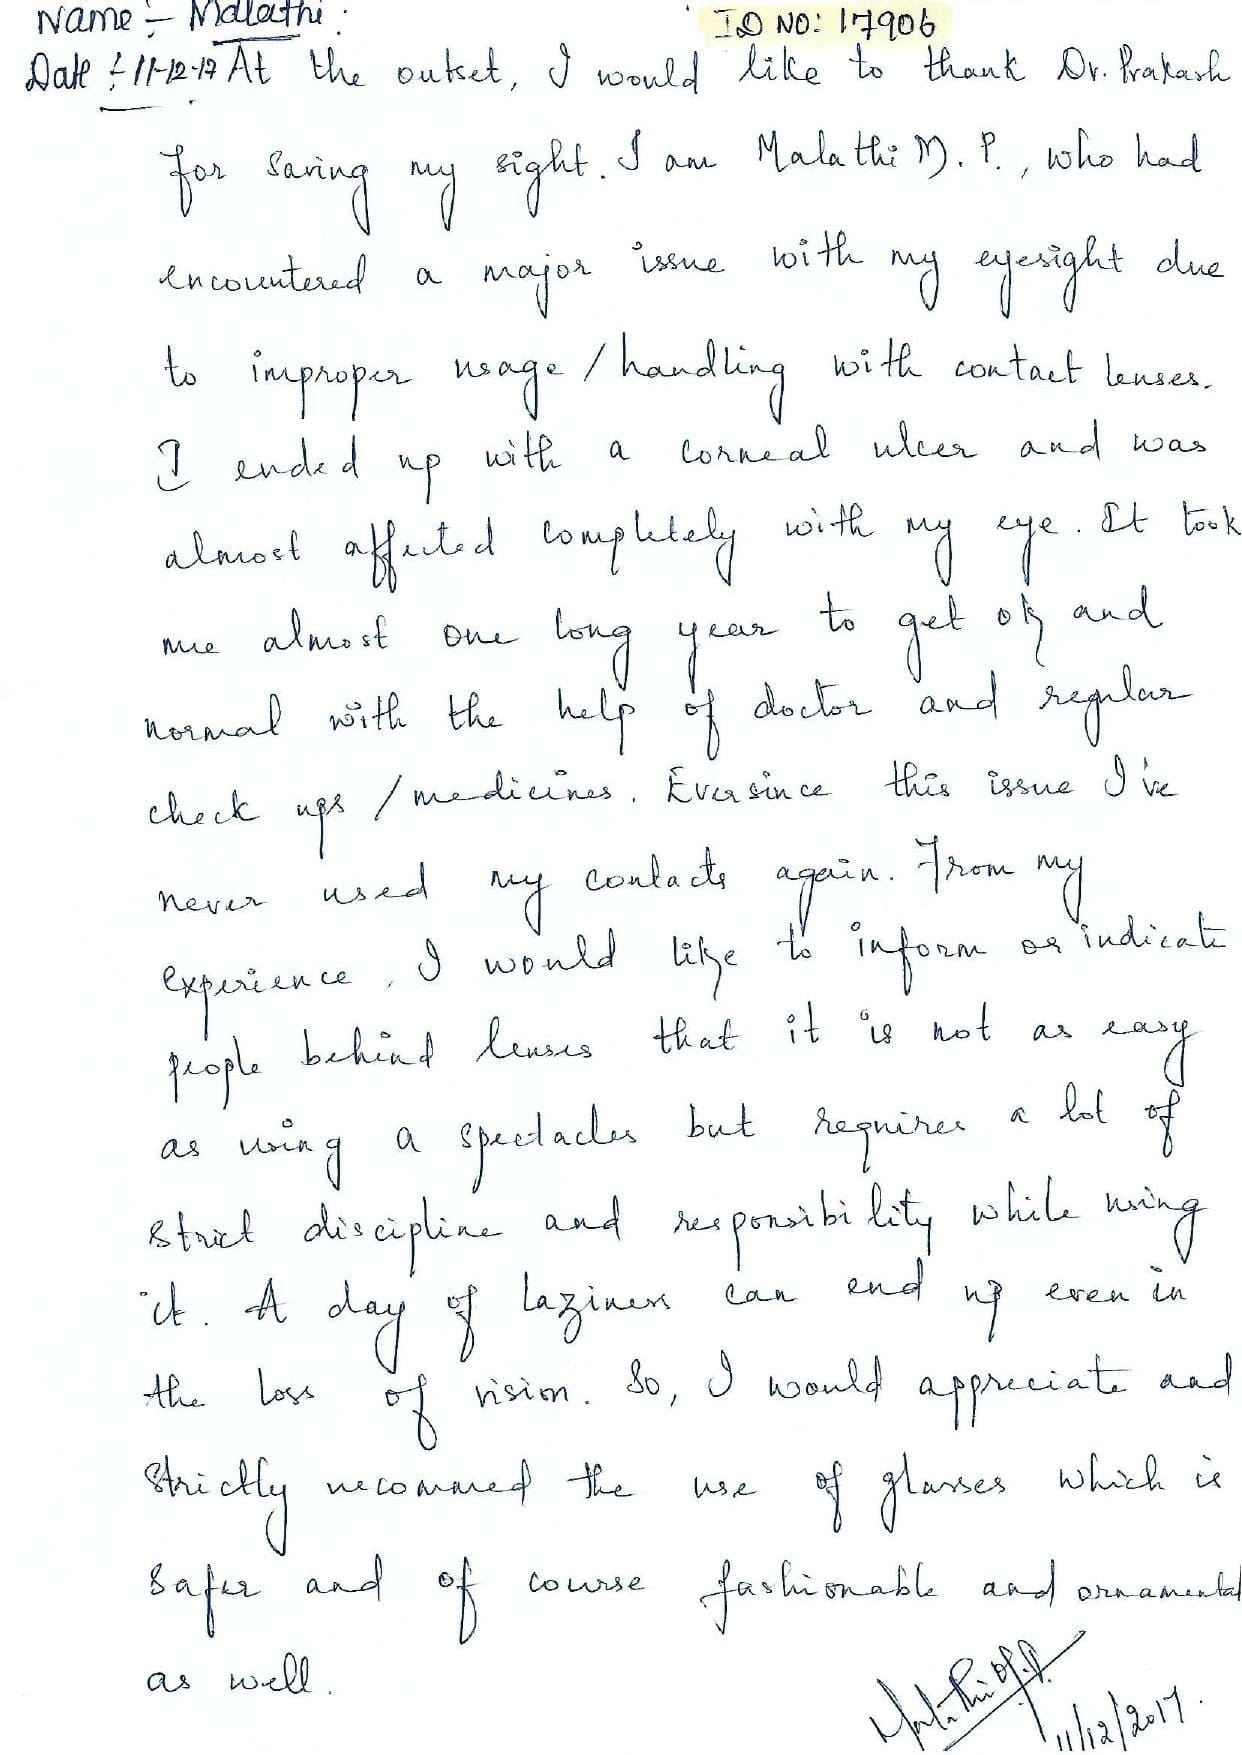 Name :- Malathi. ID NO: 17906
Date :- 11-12-17 At the outset, I would like to thank Dr. Prakash
for saving my sight. I am Malathi M. P., who had
encountered a major issue with my eyesight due
to improper usage / handling with contact lenses.
I ended up with a corneal ulcer and was
almost affected completely with my eye. It took
me almost one long year to get ok and
normal with the help of doctor and regular
check ups / medicines. Eversince this issue I've
never used my contacts again. From my
experience, I would like to inform or indicate
people behind lenses that it is not as easy
as using a spectacles but requires a lot of
strict discipline and responsibility while using
it. A day of laziness can end up even in
the loss of vision. So, I would appreciate and
strictly recommed the use of glasses which is
safer and of course fashionable and ornamental
as well.
Malathi M.P.
11/12/2017.